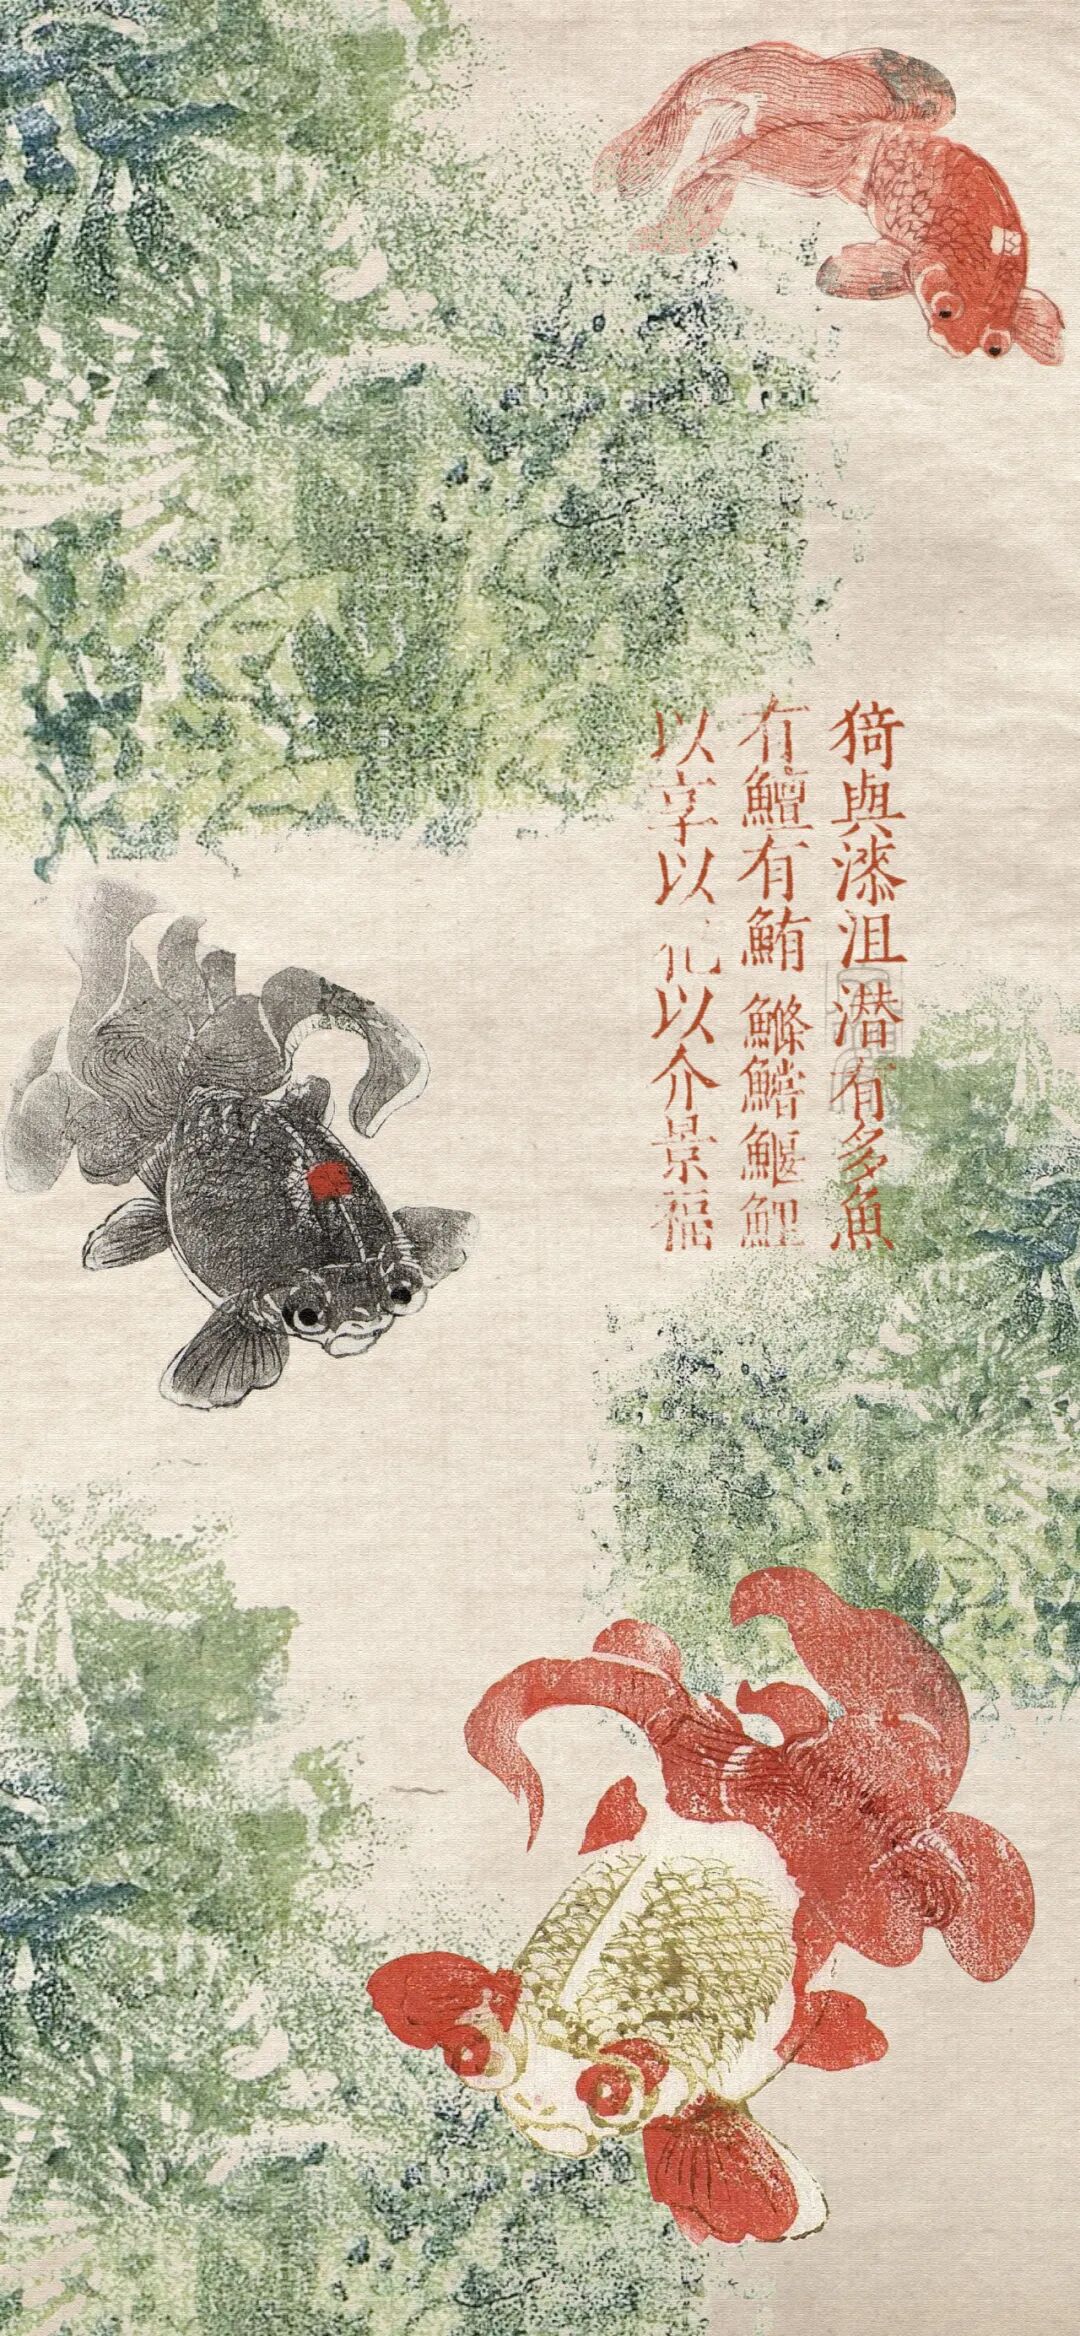 猗與漆沮潛有多魚
有鱣有鮪鰷鱨鰋鯉
以享以祀以介景福